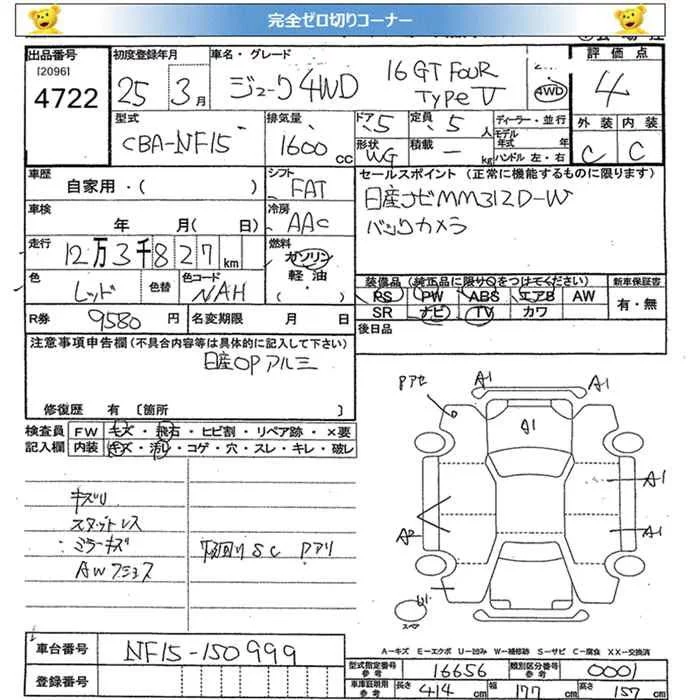 完全ゼロ切りコーナー
出品番号 初度登録年月 車名・グレード 評価点
[2096]
4722 25年 3月 ジューク4WD 16GT FOUR TYPE V 4WD 4
型式 排気量 ドア 5 定員 5人 ディーラー・並行 外装 内装
モデル年式 年
CBA-NF15 1600cc 形状 WG 積載 — kg ハンドル 左・右 C C
車歴 シフト セールスポイント (正常に機能するものに限ります)
自家用・( ) FAT 日産ナビMM312D-W
車検 冷房 バックカメラ
年 月( 日) AAC
走行 燃料
12万3千827km ガソリン
軽油
( )
色 色替 色コード 装備品 (純正品に限り○をつけてください) 新車保証書
レッド NAH PS PW ABS エアB AW 有・無
R券 9580円 名変期限 月 日 SR ナビ TV カワ
注意事項申告欄(不具合内容等は具体的に記入して下さい) 後日品
日産OPアルミ
修復歴 有 [箇所 ]
検査員 FW キズ・飛石・ヒビ割・リペア跡・×要
記入欄 内装 キズ・汚レ・コゲ・穴・スレ・キレ・破レ
Pアセ A1 A1
A1
A1
A2 A1
キズU
スタッドレス
ミラーキズ
下回りSC Pアリ
スペア
A-キズ E-エクボ U-凹み W-補修跡 S-サビ C-腐食 XX-交換済
車台番号 NF15-150999
型式指定番号 参考 16656 類別区分番号 参考 0001
登録番号 車庫証明用 参考 長さ 414cm 幅 177cm 高さ 157cm